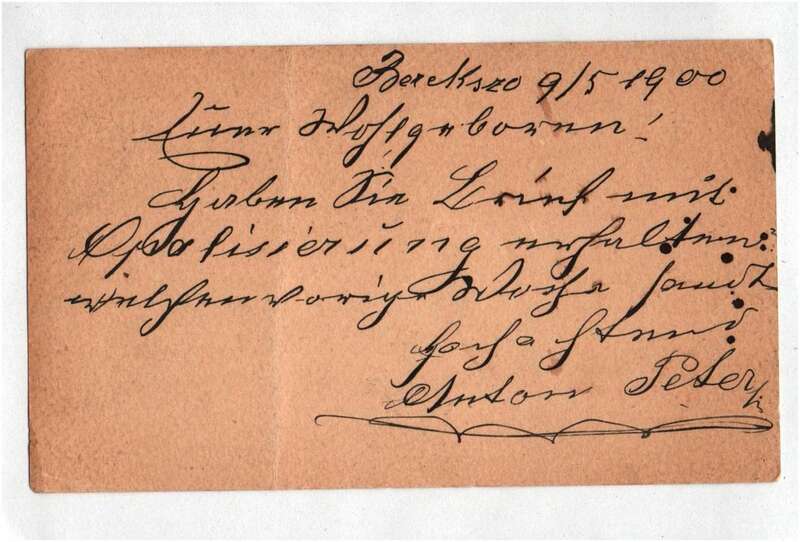 Berekszo 9/5 1900
Euer Wohlgeboren!
Haben Sie Brief mit
erhalten:
welchen vorige Woche sandt
Hochachtend
Anton Peter